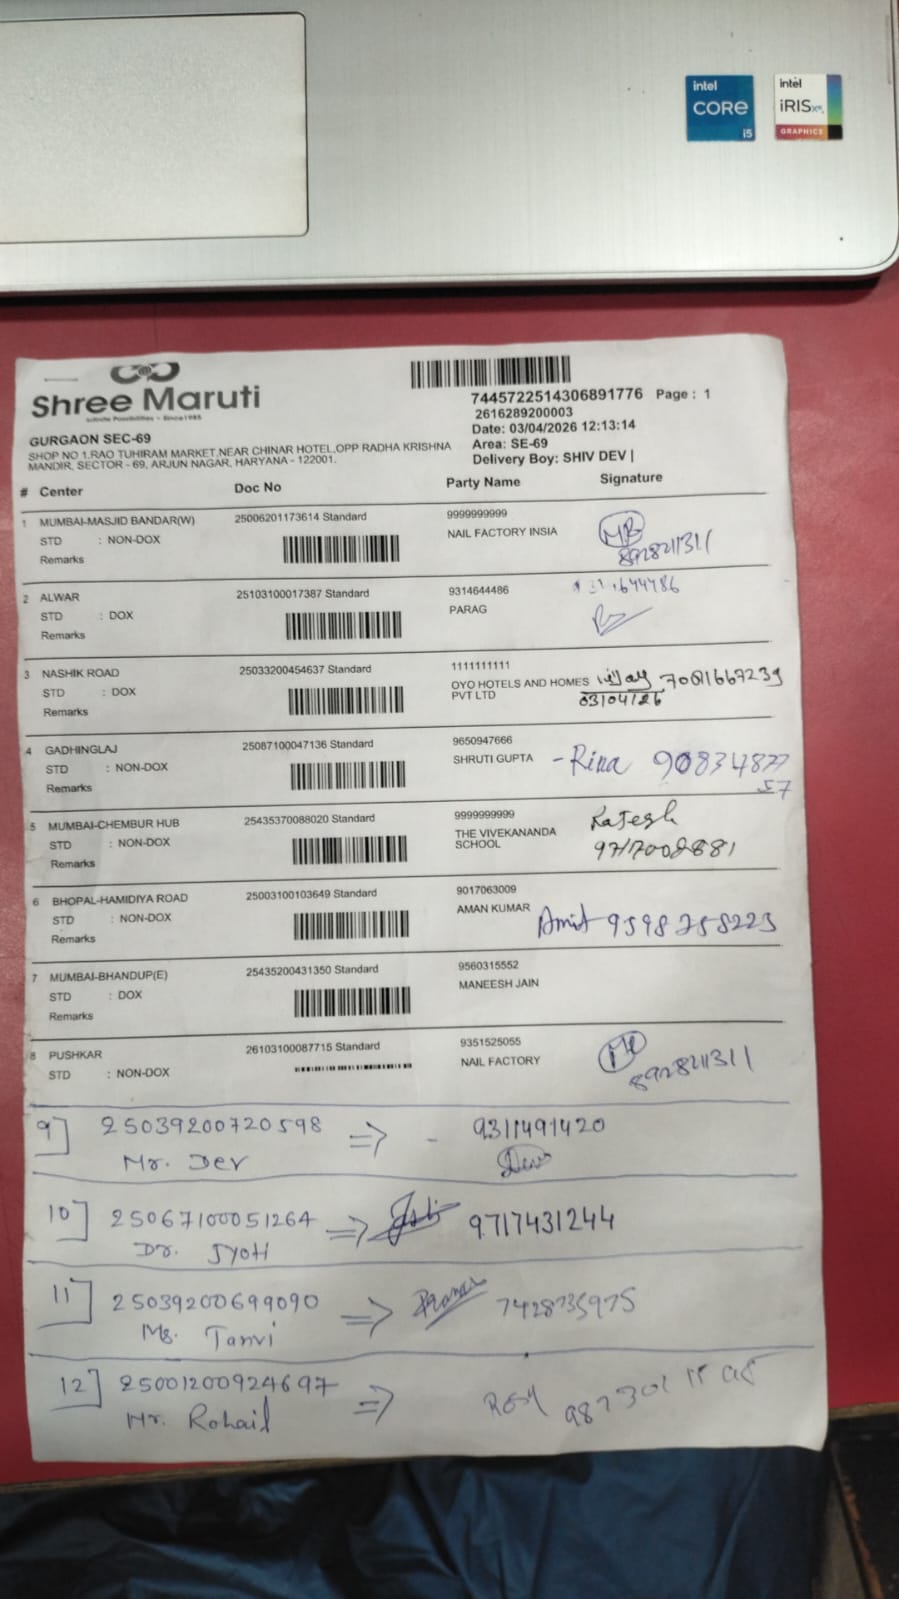 intel
CORE
i5
intel
iRISxe
GRAPHICS
Shree Maruti
Infinite Possibilities - Since1985
7445722514306891776 Page : 1
2616289200003
Date: 03/04/2026 12:13:14
Area: SE-69
Delivery Boy: SHIV DEV |
GURGAON SEC-69
SHOP NO 1.RAO TUHIRAM MARKET,NEAR CHINAR HOTEL,OPP RADHA KRISHNA
MANDIR, SECTOR - 69, ARJUN NAGAR, HARYANA - 122001.
# Center Doc No Party Name Signature
1 MUMBAI-MASJID BANDAR(W) 25006201173614 Standard 9999999999
STD : NON-DOX NAIL FACTORY INSIA
Remarks
2 ALWAR 25103100017387 Standard 9314644486
STD : DOX PARAG
Remarks
3 NASHIK ROAD 25033200454637 Standard 1111111111
STD : DOX OYO HOTELS AND HOMES
PVT LTD 03/04/26
Remarks
4 GADHINGLAJ 25087100047136 Standard 9650947666
STD : NON-DOX SHRUTI GUPTA - Rina 90834877
57
Remarks
5 MUMBAI-CHEMBUR HUB 25435370088020 Standard 9999999999
STD : NON-DOX THE VIVEKANANDA
SCHOOL Rajesh
Remarks
6 BHOPAL-HAMIDIYA ROAD 25003100103649 Standard 9017063009
STD : NON-DOX AMAN KUMAR Amit 9598758223
Remarks
7 MUMBAI-BHANDUP(E) 25435200431350 Standard 9560315552
STD : DOX MANEESH JAIN
Remarks
8 PUSHKAR 26103100087715 Standard 9351525055
STD : NON-DOX NAIL FACTORY
9] 25039200720598 ⇒ - 9311491420
Mr. Dev Dev
10] 25067100051264 ⇒ 9717431244
Dr. Jyoti
11] 25039200699090 ⇒ 7428735975
Ms. Tanvi
12] 25001200924697 ⇒
Mr. Rohail